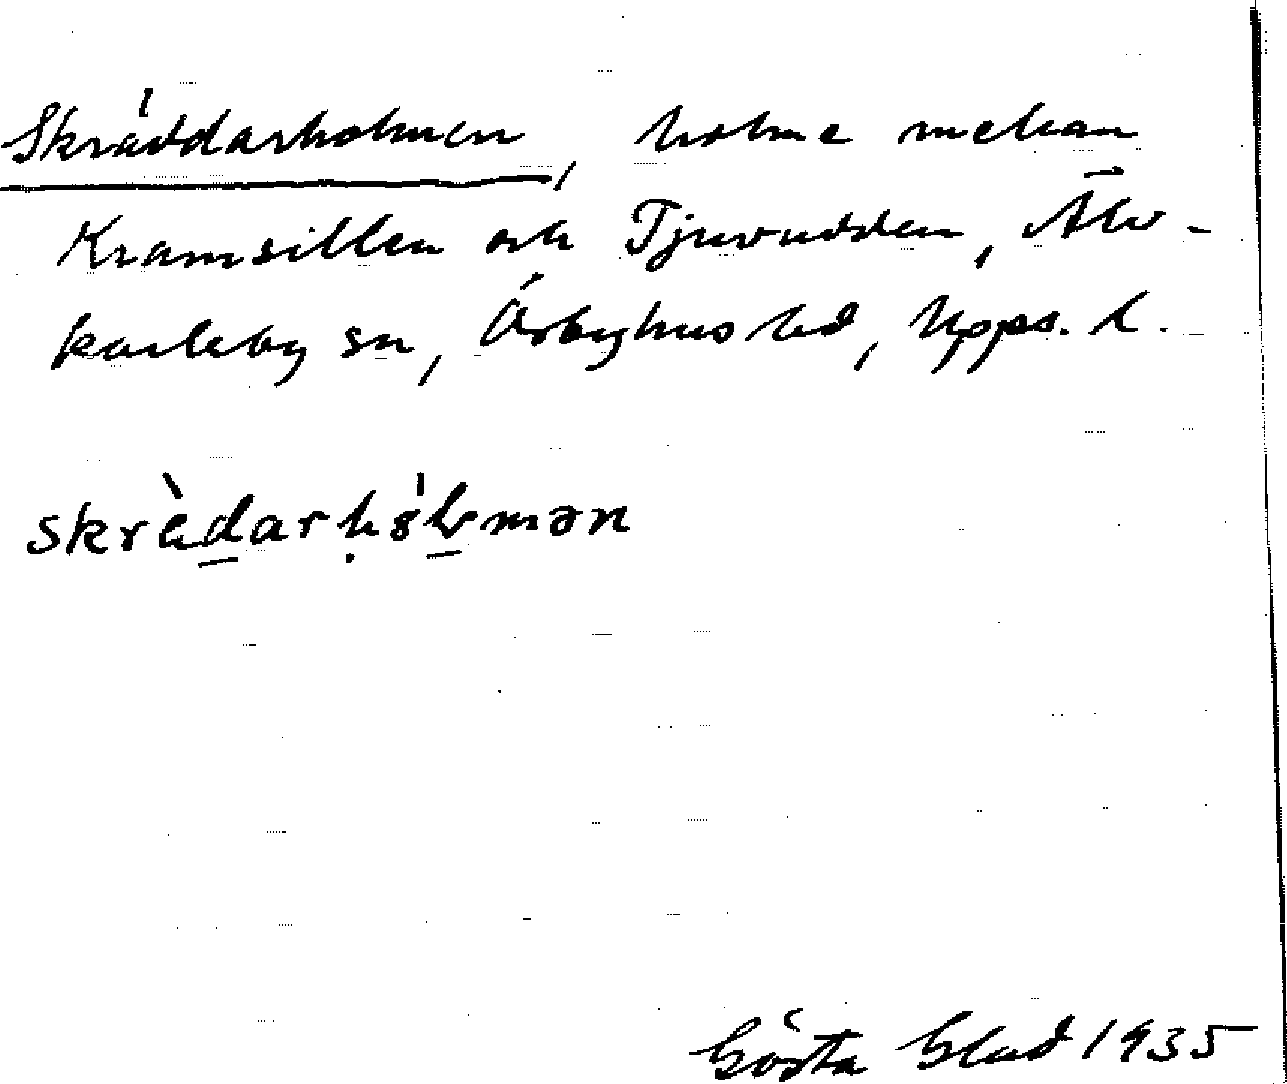 Skräddarholmen, holme mellan
Kramsillen och Tjuvudden, Älv-
karleby sn, Örbyhus hd, Upps. l.
skrὲdarhólmən
Gösta Blad 1935